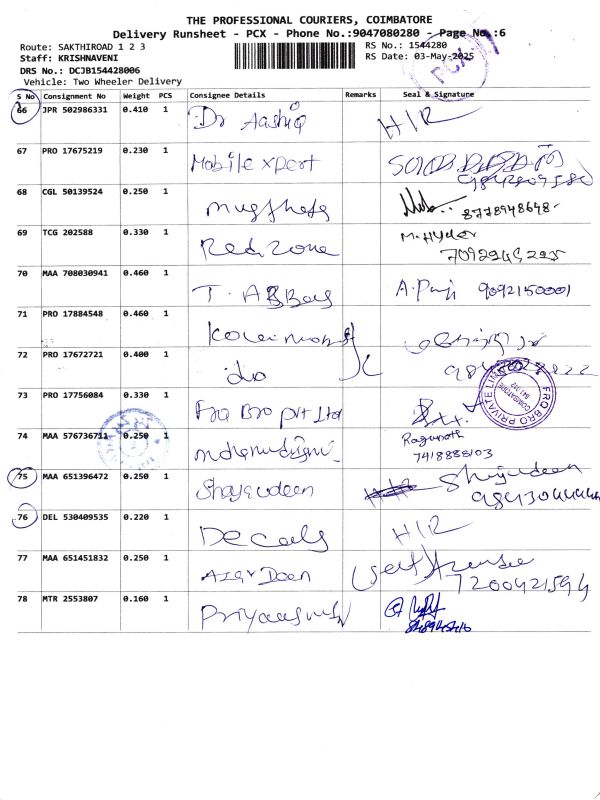 THE PROFESSIONAL COURIERS, COIMBATORE
Delivery Runsheet - PCX - Phone No.:9047080280 - Page No.:6
Route: SAKTHIROAD 1 2 3
RS No.: 1544280
Staff: KRISHNAVENI
RS Date: 03-May-2025
DRS No.: DCJB154428006
Vehicle: Two Wheeler Delivery
PCX
S No Consignment No Weight PCS Consignee Details Remarks Seal & Signature
66 JPR 502986331 0.410 1 Dr Aashiq H/R
67 PRO 17675219 0.230 1 Mobile xpert
68 CGL 50139524 0.250 1 8778948648
69 TCG 202588 0.330 1 Redzone M. Hyder
7092245295
70 MAA 708030941 0.460 1 T. ABBas A. 9092150001
71 PRO 17884548 0.460 1
72 PRO 17672721 0.400 1 do
73 PRO 17756084 0.330 1 Fra Bro pvt Ltd
FRO BRO PRIVATE LIMITED
COIMBATORE
641 012
74 MAA 576736711 0.250 1 Ragunath
7418885103
75 MAA 651396472 0.250 1 Shajeudeen
76 DEL 530409535 0.220 1 Decals H/R
77 MAA 651451832 0.250 1 7200421594
78 MTR 2553807 0.160 1